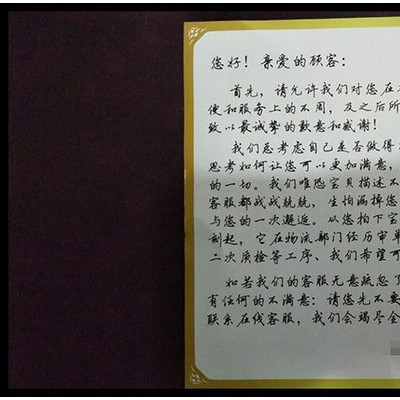 您好！亲爱的顾客：
首先，请允许我们对您在
便和服务上的不周，及之后所
致以最诚挚的歉意和感谢！
我们思考虑自己是否做得
思考如何让您可以更加满意，
的一切。我们唯恐宝贝描述不
客服都战战兢兢，生怕漏掉您
与您的一次邂逅。从您拍下宝
刻起，它在物流部门经历审单
二次质检等工序、我们希望可
如若我们的客服无意疏忽了
有任何的不满意：请您先不要
联系在线客服，我们会竭尽全